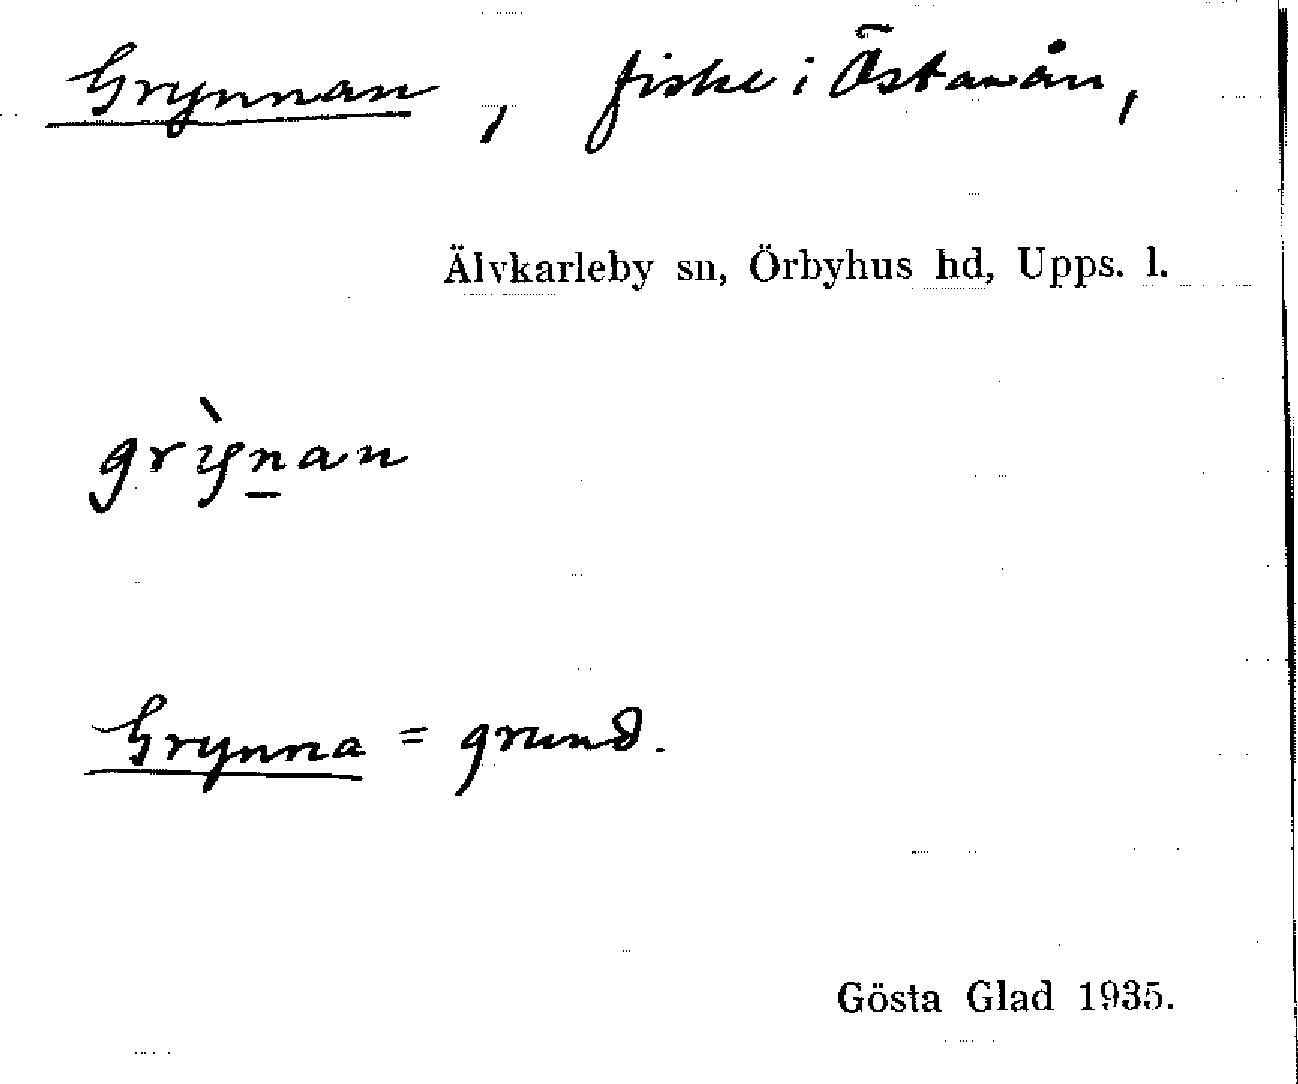 Grynnan, fiske i Östanån,
Älvkarleby sn, Örbyhus hd, Upps. l.
grỳn̲an
Grynna = grund.
Gösta Glad 1935.